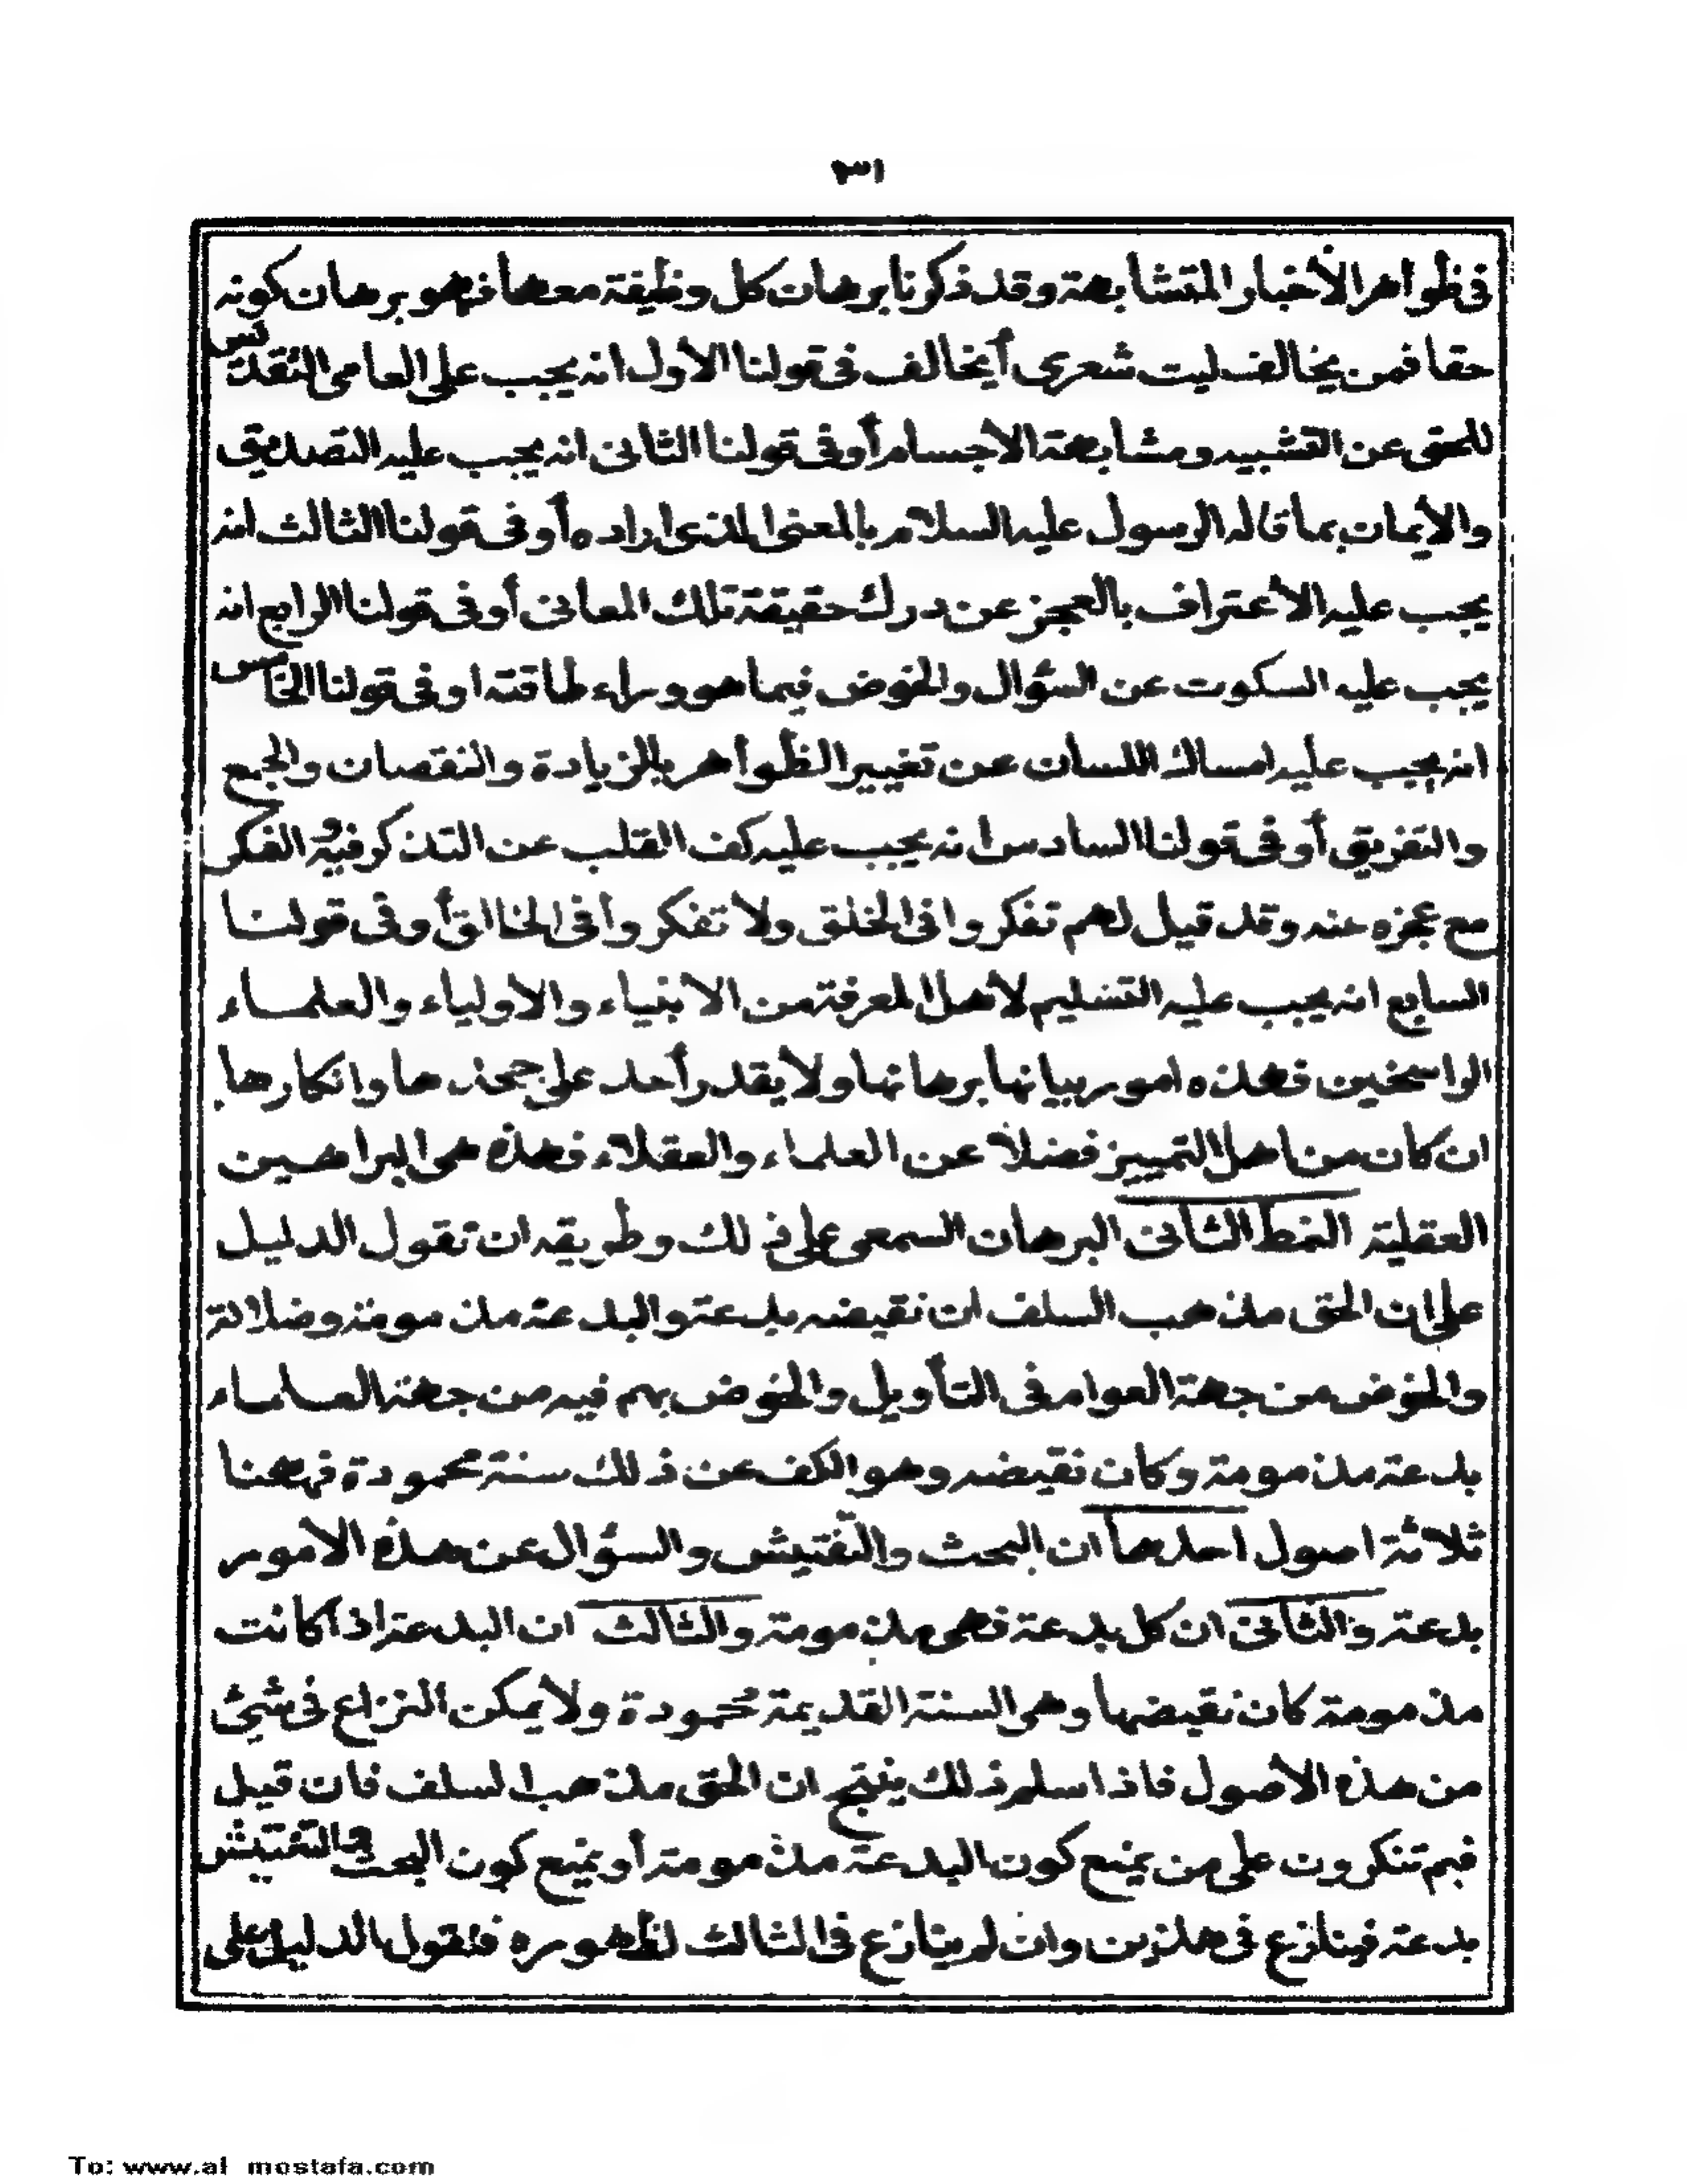 ٣١
فى ظواهر الأخبار المتشابهة وقد ذكرنا برهان كل وظيفة معها فهو برهان كونه
حقا فمن يخالف ليت شعرى أيخالف فى قولنا الأول انه يجب على العامى التقديس
للحق عن التشبيه ومشابهة الاجسام أو فى قولنا الثانى انه يجب عليه التصديق
والأيمان بما قاله الرسول عليه السلام بالمعنى الذى اراده أو فى قولنا الثالث انه
يجب عليه الأعتراف بالعجز عن درك حقيقة تلك المعانى أو فى قولنا الرابع انه
يجب عليه السكوت عن السؤال والخوض فيما هو وراء طاقته او فى قولنا الخامس
انه يجب عليه امساك اللسان عن تغيير الظواهر بالزيادة والنقصان والجمع
والتفريق أو فى قولنا السادس انه يجب عليه كف القلب عن التذكر فيه والفكر
مع عجزه عنه وقد قيل لهم تفكروا فى الخلق ولا تفكروا فى الخالق أو فى قولنا
السابع انه يجب عليه التسليم لأهل المعرفة من الانبياء والاولياء والعلماء
الراسخين فهذه امور بيانها برهانها ولا يقدر أحد على جحدها وانكارها
ان كان من اهل التمييز فضلاً عن العلماء والعقلاء فهذه هى البراهين
العقلية النمط الثانى البرهان السمعى على ذلك وطريقه ان تقول الدليل
على ان الحق مذهب السلف ان نقيضه بدعة والبدعة مذمومة وضلالة
والخوض من جهة العوام فى التأويل والخوض بهم فيه من جهة العلماء
بدعة مذمومة وكان نقيضه وهو الكف عن ذلك سنة محمودة فههنا
ثلاثة اصول احدها ان البحث والتفتيش والسؤال عن هذه الامور
بدعة والثانى ان كل بدعة فهى مذمومة والثالث ان البدعة اذا كانت
مذمومة كان نقيضها وهى السنة القديمة محمودة ولا يمكن النزاع فى شيئ
من هذه الأصول فاذا سلم ذلك ينتج ان الحق مذهب السلف فان قيل
فبم تنكرون على من يمنع كون البدعة مذمومة أو يمنع كون البحث والتفتيش
بدعة فينازع فى هذين وان لم ينازع فى الثالث لظهوره فنقول الدليل على
To: www.al mostafa.com